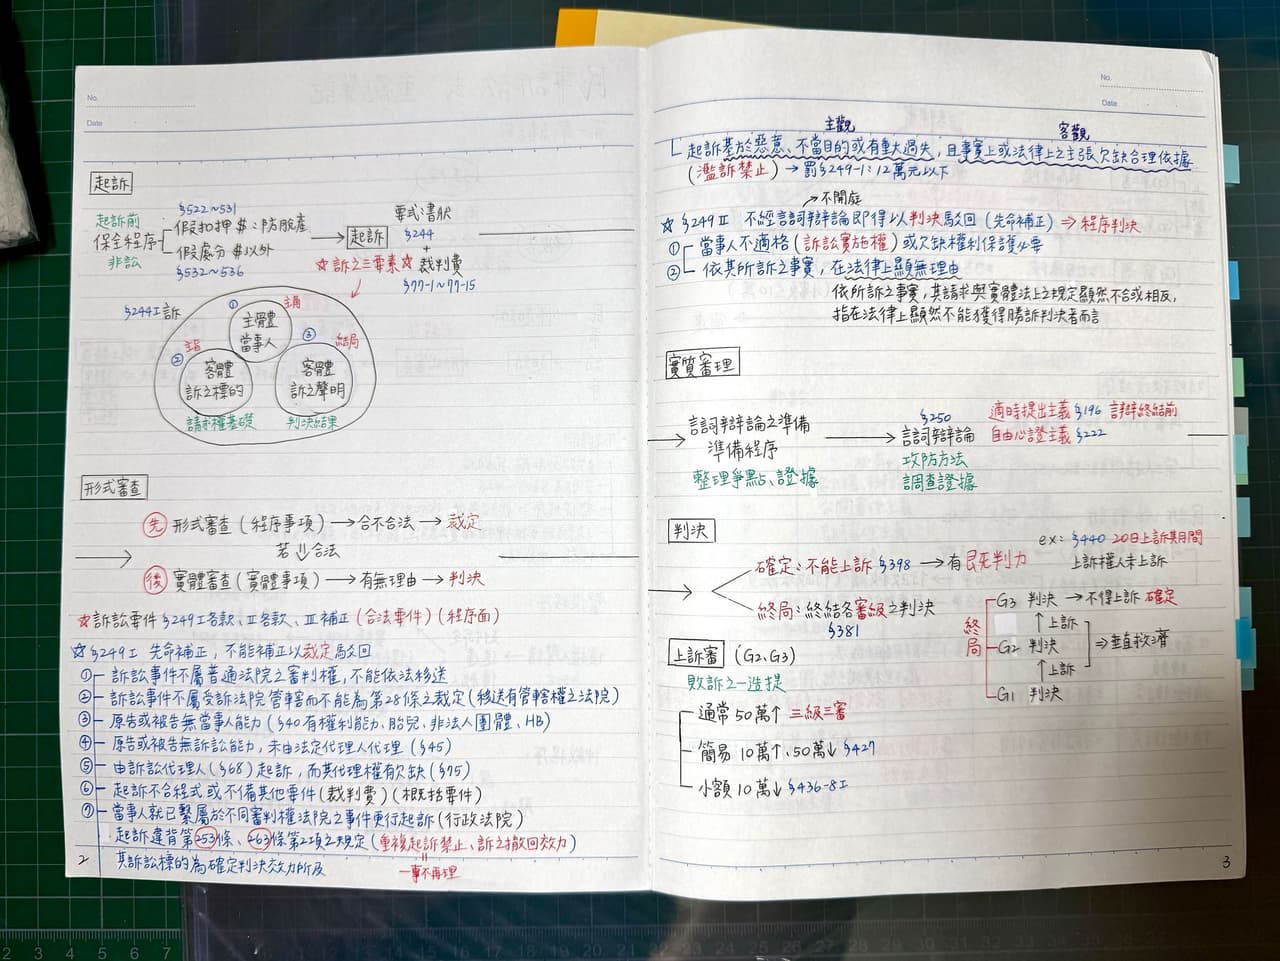 No.
Date
起訴
起訴前
保全程序
非訟
§522~531
假扣押 $:防脫產
假處分 $以外
§532~536
起訴
要式書狀
§244
+
裁判費
§77-1~77-15
☆訴之三要素☆
§244I訴
① 主體 當事人
主詞
② 客體 訴之標的
請求權基礎
③ 客體 訴之聲明
結局
判決結果
形式審查
先 形式審查(程序事項)→合不合法→裁定
若⇓合法
後 實體審查(實體事項)→有無理由→判決
☆訴訟要件§249I各款、II各款、III補正(合法要件)(程序面)
☆§249I 先命補正,不能補正以裁定駁回
① 訴訟事件不屬普通法院之審判權,不能依法移送
② 訴訟事件不屬受訴法院管轄而不能為第28條之裁定(移送有管轄權之法院)
③ 原告或被告無當事人能力(§40有權利能力、胎兒、非法人團體、HB)
④ 原告或被告無訴訟能力,未由法定代理人代理(§45)
⑤ 由訴訟代理人(§68)起訴,而其代理權有欠缺(§75)
⑥ 起訴不合程式或不備其他要件(裁判費)(概括要件)
⑦ 當事人就已繫屬於不同審判權法院之事件更行起訴(行政法院)
起訴違背第253條、263條第2項之規定(重複起訴禁止、訴之撤回效力)
其訴訟標的為確定判決效力所及
一事不再理
2
No.
Date
主觀
客觀
起訴基於惡意、不當目的或有重大過失,且事實上或法律上之主張欠缺合理依據
(濫訴禁止)→罰§249-1:12萬元以下
不開庭
☆§249II 不經言詞辯論即得以判決駁回(先命補正)⇒程序判決
① 當事人不適格(訴訟實施權)或欠缺權利保護必要
② 依其所訴之事實,在法律上顯無理由
依所訴之事實,其請求與實體法上之規定顯然不合或相反,
指在法律上顯然不能獲得勝訴判決者而言
實質審理
言詞辯論之準備
準備程序
整理爭點、證據
§250
言詞辯論
攻防方法
調查證據
適時提出主義§196 言辯終結前
自由心證主義§222
判決
確定:不能上訴§398→有既判力
ex: §440 20日上訴期間
上訴權人未上訴
終局:終結各審級之判決
§381
終局
G3 判決→不得上訴 確定
↑上訴
G2 判決
↑上訴
G1 判決
⇒垂直救濟
上訴審 (G2、G3)
敗訴之一造提
通常50萬↑ 三級三審
簡易10萬↑、50萬↓ §427
小額10萬↓ §436-8I
3
2 3 4 5 6 7